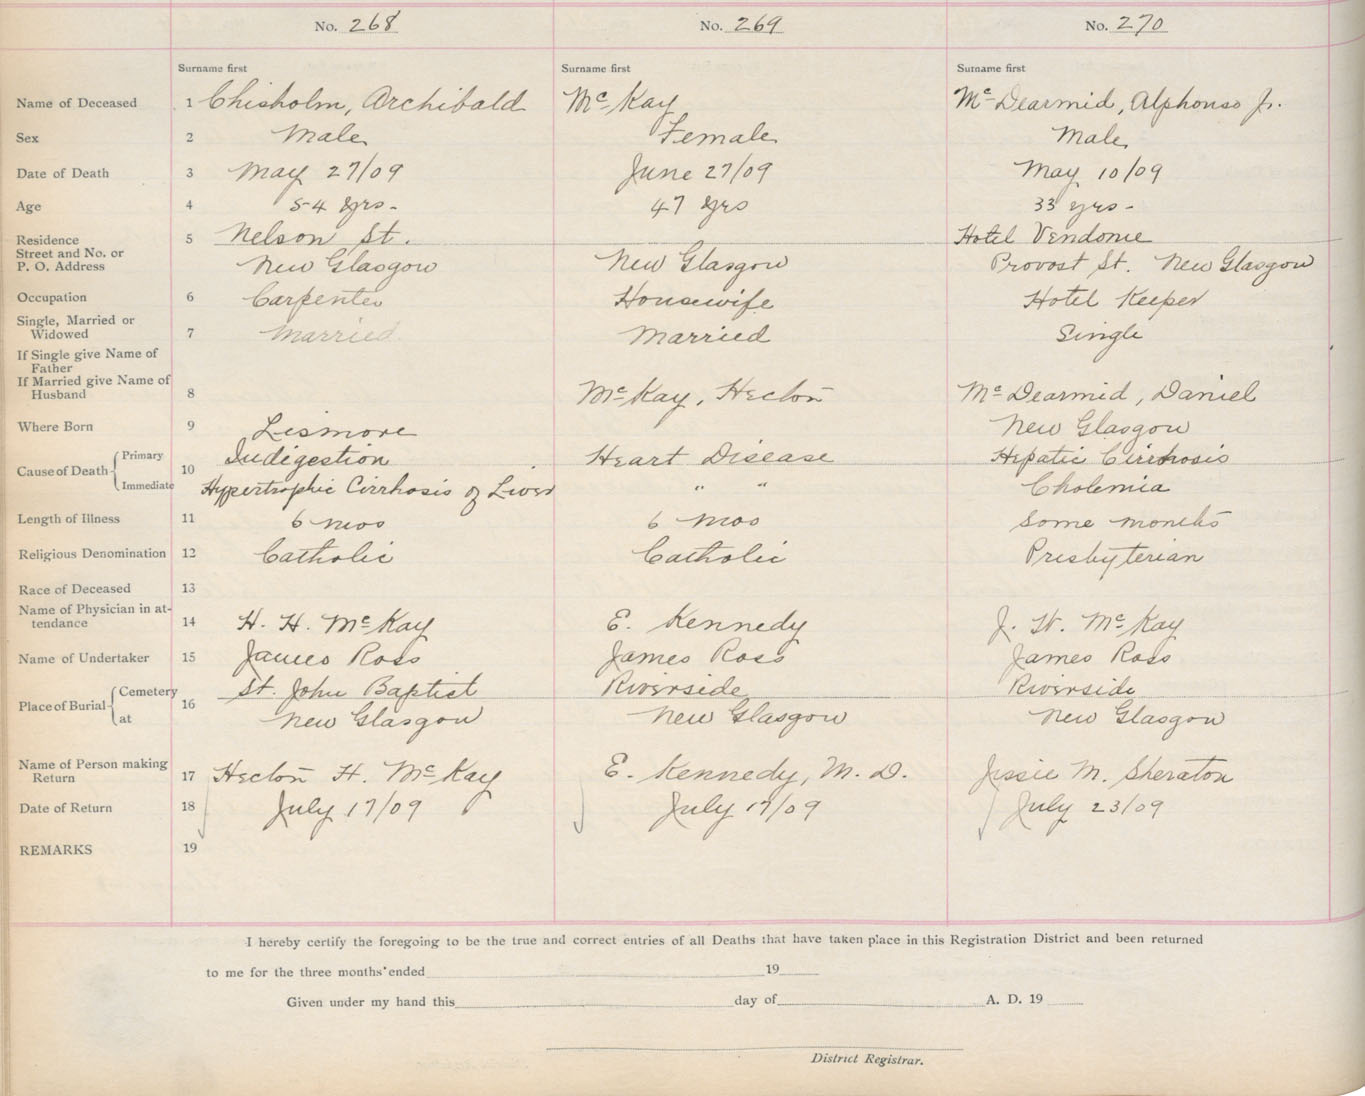 No. 268 No. 269 No. 270
Surname first Surname first Surname first
Name of Deceased 1 Chisholm, Archibald McKay McDearmid, Alphonso J.
Sex 2 Male Female Male
Date of Death 3 May 27/09 June 27/09 May 10/09
Age 4 54 yrs. 47 yrs 33 yrs.
Residence 5 Nelson St. Hotel Vendome
Street and No. or
P. O. Address New Glasgow New Glasgow Provost St. New Glasgow
Occupation 6 Carpenter Housewife Hotel Keeper
Single, Married or
Widowed 7 Married Married Single
If Single give Name of
Father
If Married give Name of
Husband 8 McKay, Hector McDearmid, Daniel
Where Born 9 Lismore New Glasgow
Cause of Death Primary 10 Indigestion Heart Disease Hepatic Cirrhosis
Immediate Hypertrophic Cirrhosis of Liver " " Cholemia
Length of Illness 11 6 mos 6 mos Some months
Religious Denomination 12 Catholic Catholic Presbyterian
Race of Deceased 13
Name of Physician in at-
tendance 14 H. H. McKay E. Kennedy J. W. McKay
Name of Undertaker 15 James Ross James Ross James Ross
Place of Burial Cemetery 16 St. John Baptist Riverside Riverside
at New Glasgow New Glasgow New Glasgow
Name of Person making
Return 17 Hector H. McKay E. Kennedy, M. D. Jessie M. Sheraton
Date of Return 18 July 17/09 July 17/09 July 23/09
REMARKS 19
I hereby certify the foregoing to be the true and correct entries of all Deaths that have taken place in this Registration District and been returned
to me for the three months' ended 19
Given under my hand this day of A. D. 19
District Registrar.